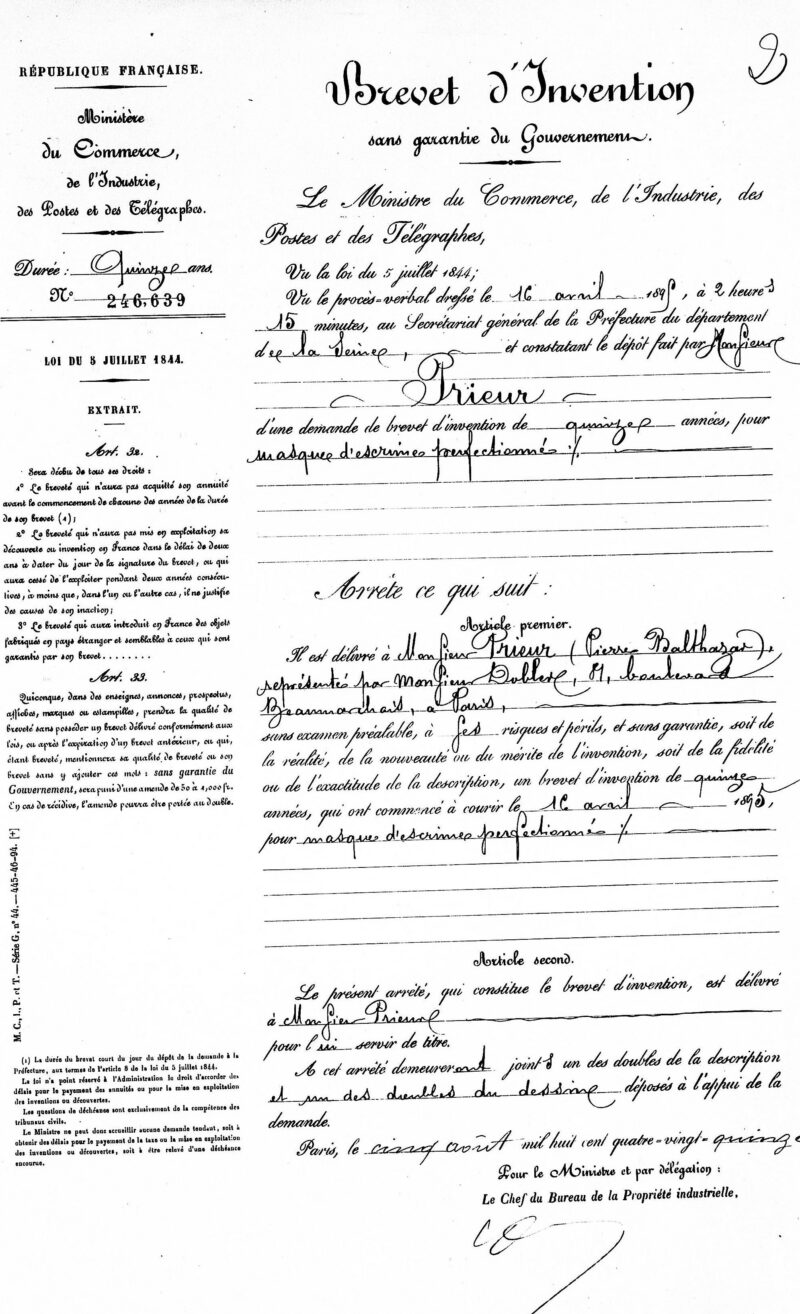 RÉPUBLIQUE FRANÇAISE.
Ministère
du Commerce,
de l'Industrie,
des Postes et des Télégraphes.
Durée : Quinze ans.
N° 246,639
LOI DU 5 JUILLET 1844.
EXTRAIT.
Art. 32.
Sera déchu de tous ses droits :
1° Le breveté qui n'aura pas acquitté son annuité
avant le commencement de chacune des années de la durée
de son brevet (1);
2° Le breveté qui n'aura pas mis en exploitation sa
découverte ou invention en France dans le délai de deux
ans à dater du jour de la signature du brevet, ou qui
aura cessé de l'exploiter pendant deux années consécu-
tives, à moins que, dans l'un ou l'autre cas, il ne justifie
des causes de son inaction;
3° Le breveté qui aura introduit en France des objets
fabriqués en pays étranger et semblables à ceux qui sont
garantis par son brevet........
Art. 33.
Quiconque, dans des enseignes, annonces, prospectus,
affiches, marques ou estampilles, prendra la qualité de
breveté sans posséder un brevet délivré conformément aux
lois, ou après l'expiration d'un brevet antérieur, ou qui,
étant breveté, mentionnera sa qualité de breveté ou son
brevet sans y ajouter ces mots : sans garantie du
Gouvernement, sera puni d'une amende de 50 à 1,000 fr.
En cas de récidive, l'amende pourra être portée au double.
M. C., I., P. et T. — Série G, n° 44. — 445-46-94. [*]
(1) La durée du brevet court du jour du dépôt de la demande à la
Préfecture, aux termes de l'article 8 de la loi du 5 juillet 1844.
La loi n'a point réservé à l'Administration le droit d'accorder des
délais pour le payement des annuités ou pour la mise en exploitation
des inventions ou découvertes.
Les questions de déchéance sont exclusivement de la compétence des
tribunaux civils.
Le Ministre ne peut donc accueillir aucune demande tendant, soit à
obtenir des délais pour le payement de la taxe ou la mise en exploitation
des inventions ou découvertes, soit à être relevé d'une déchéance
encourue.
2
Brevet d'Invention
sans garantie du Gouvernement.
Le Ministre du Commerce, de l'Industrie, des
Postes et des Télégraphes,
Vu la loi du 5 juillet 1844;
Vu le procès-verbal dressé le 16 avril 1895, à 2 heures
15 minutes, au Secrétariat général de la Préfecture du département
de la Seine, et constatant le dépôt fait par Monsieur
Prieur
d'une demande de brevet d'invention de quinze années, pour
masque d'escrime perfectionné ./.
Arrête ce qui suit :
Article premier.
Il est délivré à Monsieur Prieur (Pierre Balthazar),
représenté par Monsieur Dobler, 81, boulevard
Beaumarchais, à Paris,
sans examen préalable, à ses risques et périls, et sans garantie, soit de
la réalité, de la nouveauté ou du mérite de l'invention, soit de la fidélité
ou de l'exactitude de la description, un brevet d'invention de quinze
années, qui ont commencé à courir le 16 avril 1895,
pour masque d'escrime perfectionné ./.
Article second.
Le présent arrêté, qui constitue le brevet d'invention, est délivré
à Monsieur Prieur
pour lui servir de titre.
A cet arrêté demeureront joints un des doubles de la description
et un des doubles du dessin déposés à l'appui de la
demande.
Paris, le cinq août mil huit cent quatre-vingt-quinze
Pour le Ministre et par délégation :
Le Chef du Bureau de la Propriété industrielle,